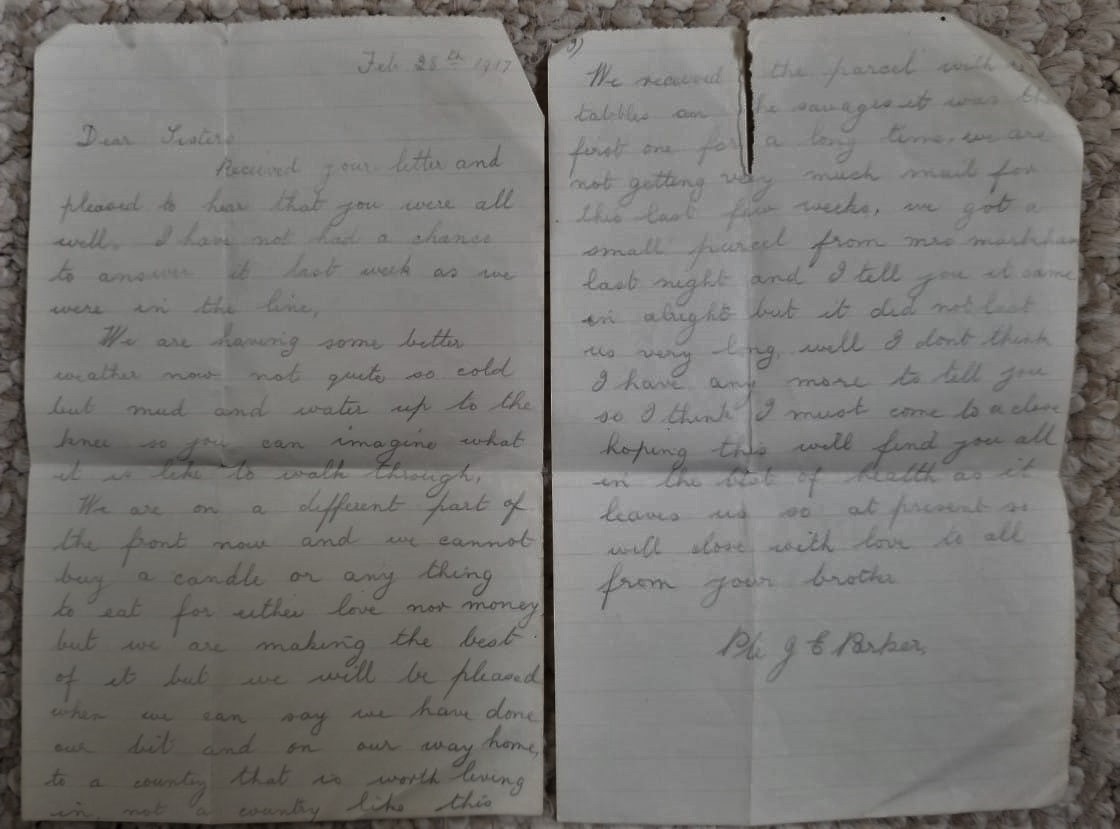 Feb 28th 1917
Dear Sisters
Received your letter and
pleased to hear that you were all
well. I have not had a chance
to answer it last week as we
were in the line,
We are having some better
weather now not quite so cold
but mud and water up to the
knee so you can imagine what
it is like to walk through,
We are on a different part of
the front now and we cannot
buy a candle or any thing
to eat for either love nor money
but we are making the best
of it but we will be pleased
when we can say we have done
our bit and on our way home,
to a country that is worth living
in not a country like this
We received the parcel with
tabbles an the savages it was the
first one for a long time. we are
not getting very much mail for
this last few weeks, we got a
small parcel from mrs markham
last night and I tell you it came
in alright but it did not last
us very long, well I dont think
I have any more to tell you
so I think I must come to a close
hoping this will find you all
in the best of health as it
leaves us so at present so
will close with love to all
from your brother
Pte J E Parker,